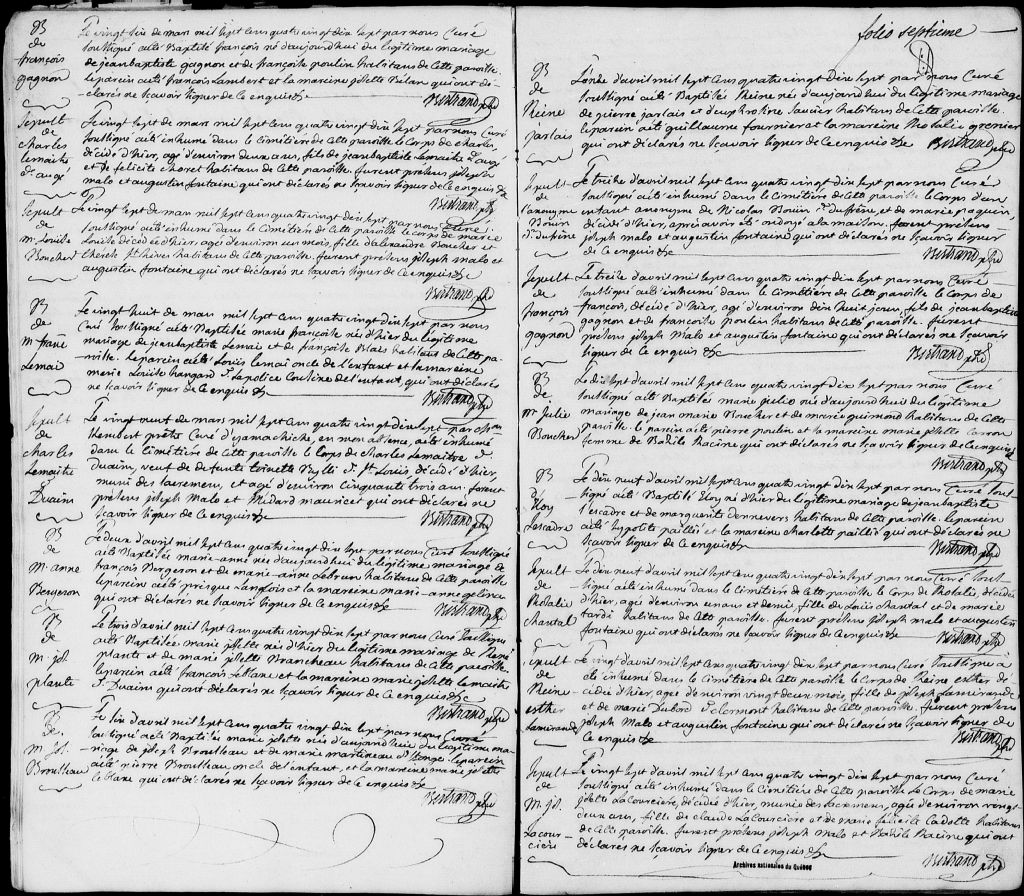 B
de
françois
gagnon
Le vingt six de mars mil sept cens quatre vingt dix sept par nous Curé
soussigné a été Baptisé françois né d'aujourd'hui du légitime mariage
de jean baptiste gagnon et de françoise poulin habitans de Cette paroisse.
le parein a été françois Lambert et la mareine josette Bélan qui ont dé-
clarés ne sçavoir signer de Ce enquis &c
Bertrand ptre
Sepult
de
Charles
lemaitre
d'augé
Le vingt sept de mars mil sept cens quatre vingt dix sept par nous Curé
soussigné a été inhumé dans le Cimétière de Cette paroisse le Corps de Charles,
décédé d'hier, agé d'environ deux ans, fils de jean baptiste Lemaitre d'augé
et de felicité choret habitans de Cette paroisse. furent présens joseph
malo et augustin fontaine qui ont déclarés ne sçavoir signer de Ce enquis &c
Bertrand ptre
Sepult
de
M. Louise
Bouchert
Le vingt sept de mars mil sept cens quatre vingt dix sept par nous Curé
soussigné a été inhumé dans le Cimétière de Cette paroisse le Corps de marie
Louise décédée d'hier, agée d'environ un mois, fille d'alexandre Boucher et
habitans de Cette paroisse. furent présens joseph malo et
augustin fontaine qui ont déclarés ne sçavoir signer de Ce enquis &c
Bertrand ptre
B
de
m. franc
Lemai
Le vingt huit de mars mil sept cens quatre vingt dix sept par nous
Curé soussigné a été Baptisée marie françoise née d'hier du légitime
mariage de jean baptiste Lemai et de françoise Blais habitans de Cette pa-
roisse. le parein a été Louis lemai oncle de l'enfant et la mareine
marie Louise hangard S. lapolice Cousine de l'enfant, qui ont déclarés
ne sçavoir signer de Ce enquis &c
Bertrand ptre
Sepult
de
Charles
Lemaitre
Duaim
Le vingt neuf de mars mil sept cens quatre vingt dix sept par
prêtre Curé d'yamachiche, en mon absence, a été inhumé
dans le Cimétière de Cette paroisse le Corps de Charles Lemaitre S.
Duaim, veuf de defunte toinette S. St. Louis, décédé d'hier,
muni des sacremens, et agé d'environ Cinquante trois ans. furent
présens joseph Malo et Médard mauricet qui ont déclarés ne
sçavoir signer de Ce enquis &c
Bertrand ptre
B
de
M. anne
Bergeron
Le deux d'avril mil sept cens quatre vingt dix sept par nous Curé soussigné
a été Baptisée marie-anne née d'aujourd'hui du légitime mariage de
françois Bergeron et de marie-anne Lebrun habitans de Cette paroisse
le parein a été Langlois et la mareine marie-anne gelinau
qui ont déclarés ne sçavoir signer de Ce enquis &c
Bertrand ptre
B
de
m. jos.
plante
Le trois d'avril mil sept cens quatre vingt dix sept par nous Curé soussigné
a été Baptisée marie josette née d'hier du légitime mariage de René
plante et de marie josette Brancheau habitans de Cette paroisse
le parein a été françois leblanc et la mareine marie josette lemaitre
S. Duaim qui ont déclarés ne sçavoir signer de Ce enquis &c
Bertrand ptre
B
de
m. jos.
Brousseau
Le six d'avril mil sept cens quatre vingt dix sept par nous Curé
soussigné a été Baptisée marie josette née d'aujourd'hui du légitime ma-
riage de joseph Brousseau et de marie martineau le parein
a été pierre Brousseau, oncle de l'enfant, et la mareine marie josette
le blanc qui ont déclarés ne sçavoir signer de Ce enquis &c
Bertrand ptre
folio septieme
B
de
Reine
parlais
L'onze d'avril mil sept cens quatre vingt dix sept par nous Curé
soussigné a été Baptisée Reine née d'aujourd'hui du légitime mariage
de pierre jarlais et d'euphrosine Saucier habitans de Cette paroisse
le parein a été guillaume fournier et la mareine Natalie grenier
qui ont déclarés ne sçavoir signer de Ce enquis &c
Bertrand ptre
Sepult
de
l'anonyme
Bouin
S. dufrêne
Le treize d'avril mil sept cens quatre vingt dix sept par nous Curé
soussigné a été inhumé dans le Cimétière de Cette paroisse le Corps d'un
enfant anonyme de Nicolas Bouin S. Duffrêne, et de marie paquin,
décédé d'hier, après avoir été ondoyé à la maison. furent présens
joseph malo et augustin fontaine qui ont déclarés ne sçavoir signer
de Ce enquis &c
Bertrand ptre
Sepult
de
françois
gagnon
Le treize d'avril mil sept cens quatre vingt dix sept par nous Curé
soussigné a été inhumé dans le Cimétière de Cette paroisse le Corps de
françois, décédé d'hier, agé d'environ dix huit jours, fils de jean baptiste
gagnon et de françoise poulin habitans de Cette paroisse. furent
présens joseph Malo et augustin fontaine qui ont déclarés ne sçavoir
signer de Ce enquis &c
Bertrand ptre
B
de
m. Julie
Boucher
Le dix sept d'avril mil sept cens quatre vingt dix sept par nous Curé
soussigné a été Baptisée marie julie née d'aujourd'hui du légitime
mariage de jean marie Boucher et de marie guimond habitans de Cette
paroisse. le parein a été pierre poulin et la mareine marie josette Carron
femme de Basile Racine qui ont déclarés ne sçavoir signer de Ce enquis
Bertrand ptre
B
d'
Eloy
Lescadre
Le dix neuf d'avril mil sept cens quatre vingt dix sept par nous Curé sous-
signé a été Baptisé Eloy né d'hier du légitime mariage de jean baptiste
l'escadre et de marguerite dennevers habitans de Cette paroisse. le parein
a été hypolite paillié et la mareine charlotte paillié qui ont déclarés ne
sçavoir signer de Ce enquis &c
Bertrand ptre
Sepult
de
Natalie
chantal
Le dix neuf d'avril mil sept cens quatre vingt dix sept par nous Curé sous-
signé a été inhumée dans le Cimétière de Cette paroisse le Corps de Natalie, décédée
d'hier, agée d'environ un ans et demi, fille de Louis chantal et de marie
tardi habitans de Cette paroisse. furent présens joseph malo et augustin
fontaine qui ont déclarés ne sçavoir signer de Ce enquis &c
Bertrand ptre
Sepult
de
Reine
esther
Lamirande
Le vingt d'avril mil sept cens quatre vingt dix sept par nous Curé soussigné a
été inhumée dans le Cimétière de Cette paroisse le Corps de Reine esther dé-
cédée d'hier, agée d'environ vingt deux mois, fille de joseph Lamirande
et de marie Dubord S. Clermont habitans de Cette paroisse. furent présens
joseph Malo et augustin fontaine qui ont déclarés ne sçavoir signer de
Ce enquis
Bertrand ptre
Sepult
de
M. jos.
Lacour-
ciere
Le vingt sept d'avril mil sept cens quatre vingt dix sept par nous Curé
soussigné a été inhumée dans le Cimétière de Cette paroisse le Corps de marie
josette La Courcière, décédée d'hier, munie des sacremens, agée d'environ vingt
deux ans, fille de Claude La Courcière et de marie felicité Cadotte habitans
de Cette paroisse. furent présens joseph Malo et Basile Racine qui ont
déclarés ne sçavoir signer de Ce enquis &c
Bertrand ptre
Archives nationales du Québec